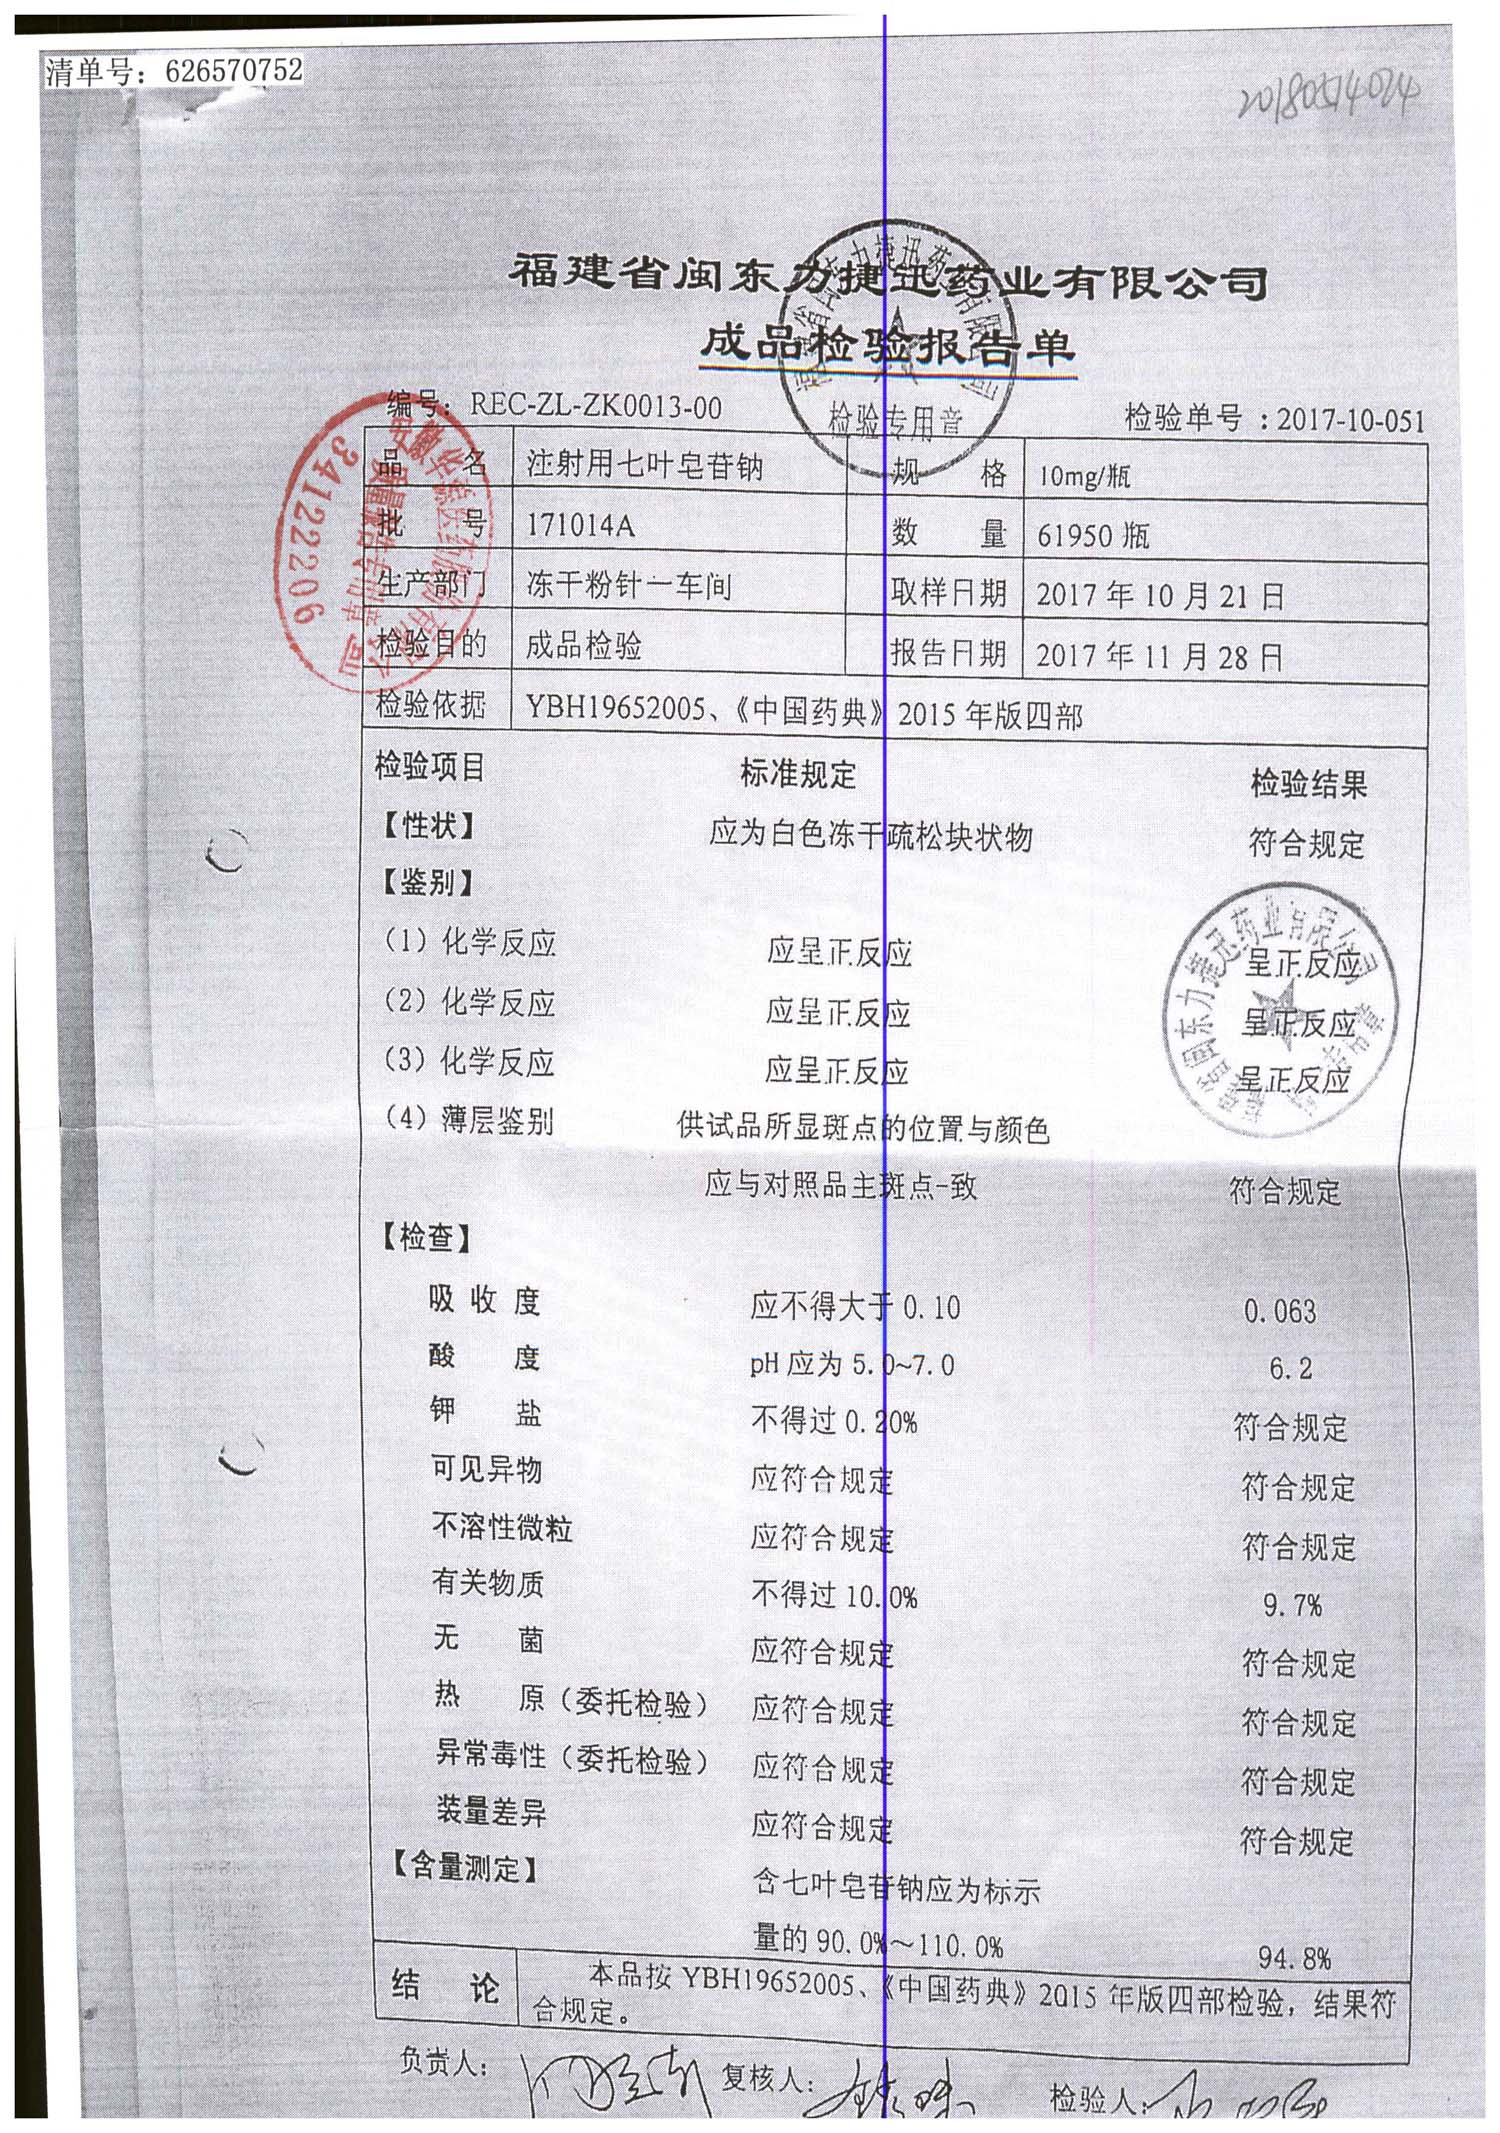 清单号：626570752
20180514024
福建省闽东力捷迅药业有限公司
成品检验报告单
检验专用章
编号：REC-ZL-ZK0013-00 检验单号：2017-10-051
品名 注射用七叶皂苷钠 规格 10mg/瓶
批号 171014A 数量 61950瓶
生产部门 冻干粉针一车间 取样日期 2017年10月21日
检验目的 成品检验 报告日期 2017年11月28日
检验依据 YBH19652005、《中国药典》2015年版四部
3412206
检验项目 标准规定 检验结果
【性状】 应为白色冻干疏松块状物 符合规定
【鉴别】
（1）化学反应 应呈正反应 呈正反应
（2）化学反应 应呈正反应 呈正反应
（3）化学反应 应呈正反应 呈正反应
（4）薄层鉴别 供试品所显斑点的位置与颜色
应与对照品主斑点一致 符合规定
【检查】
吸收度 应不得大于0.10 0.063
酸度 pH应为5.0~7.0 6.2
钾盐 不得过0.20% 符合规定
可见异物 应符合规定 符合规定
不溶性微粒 应符合规定 符合规定
有关物质 不得过10.0% 9.7%
无菌 应符合规定 符合规定
热原（委托检验） 应符合规定 符合规定
异常毒性（委托检验） 应符合规定 符合规定
装量差异 应符合规定 符合规定
【含量测定】 含七叶皂苷钠应为标示
量的90.0%～110.0% 94.8%
结论 本品按YBH19652005、《中国药典》2015年版四部检验，结果符
合规定。
负责人： 复核人： 检验人：